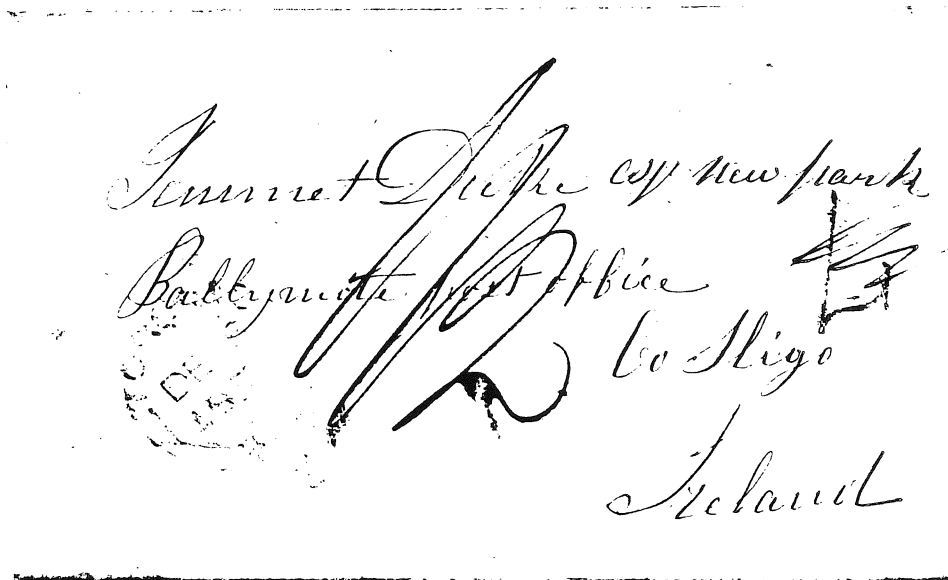 Jemmet Duke esq new park
Ballymote post office
Co Sligo
Ireland